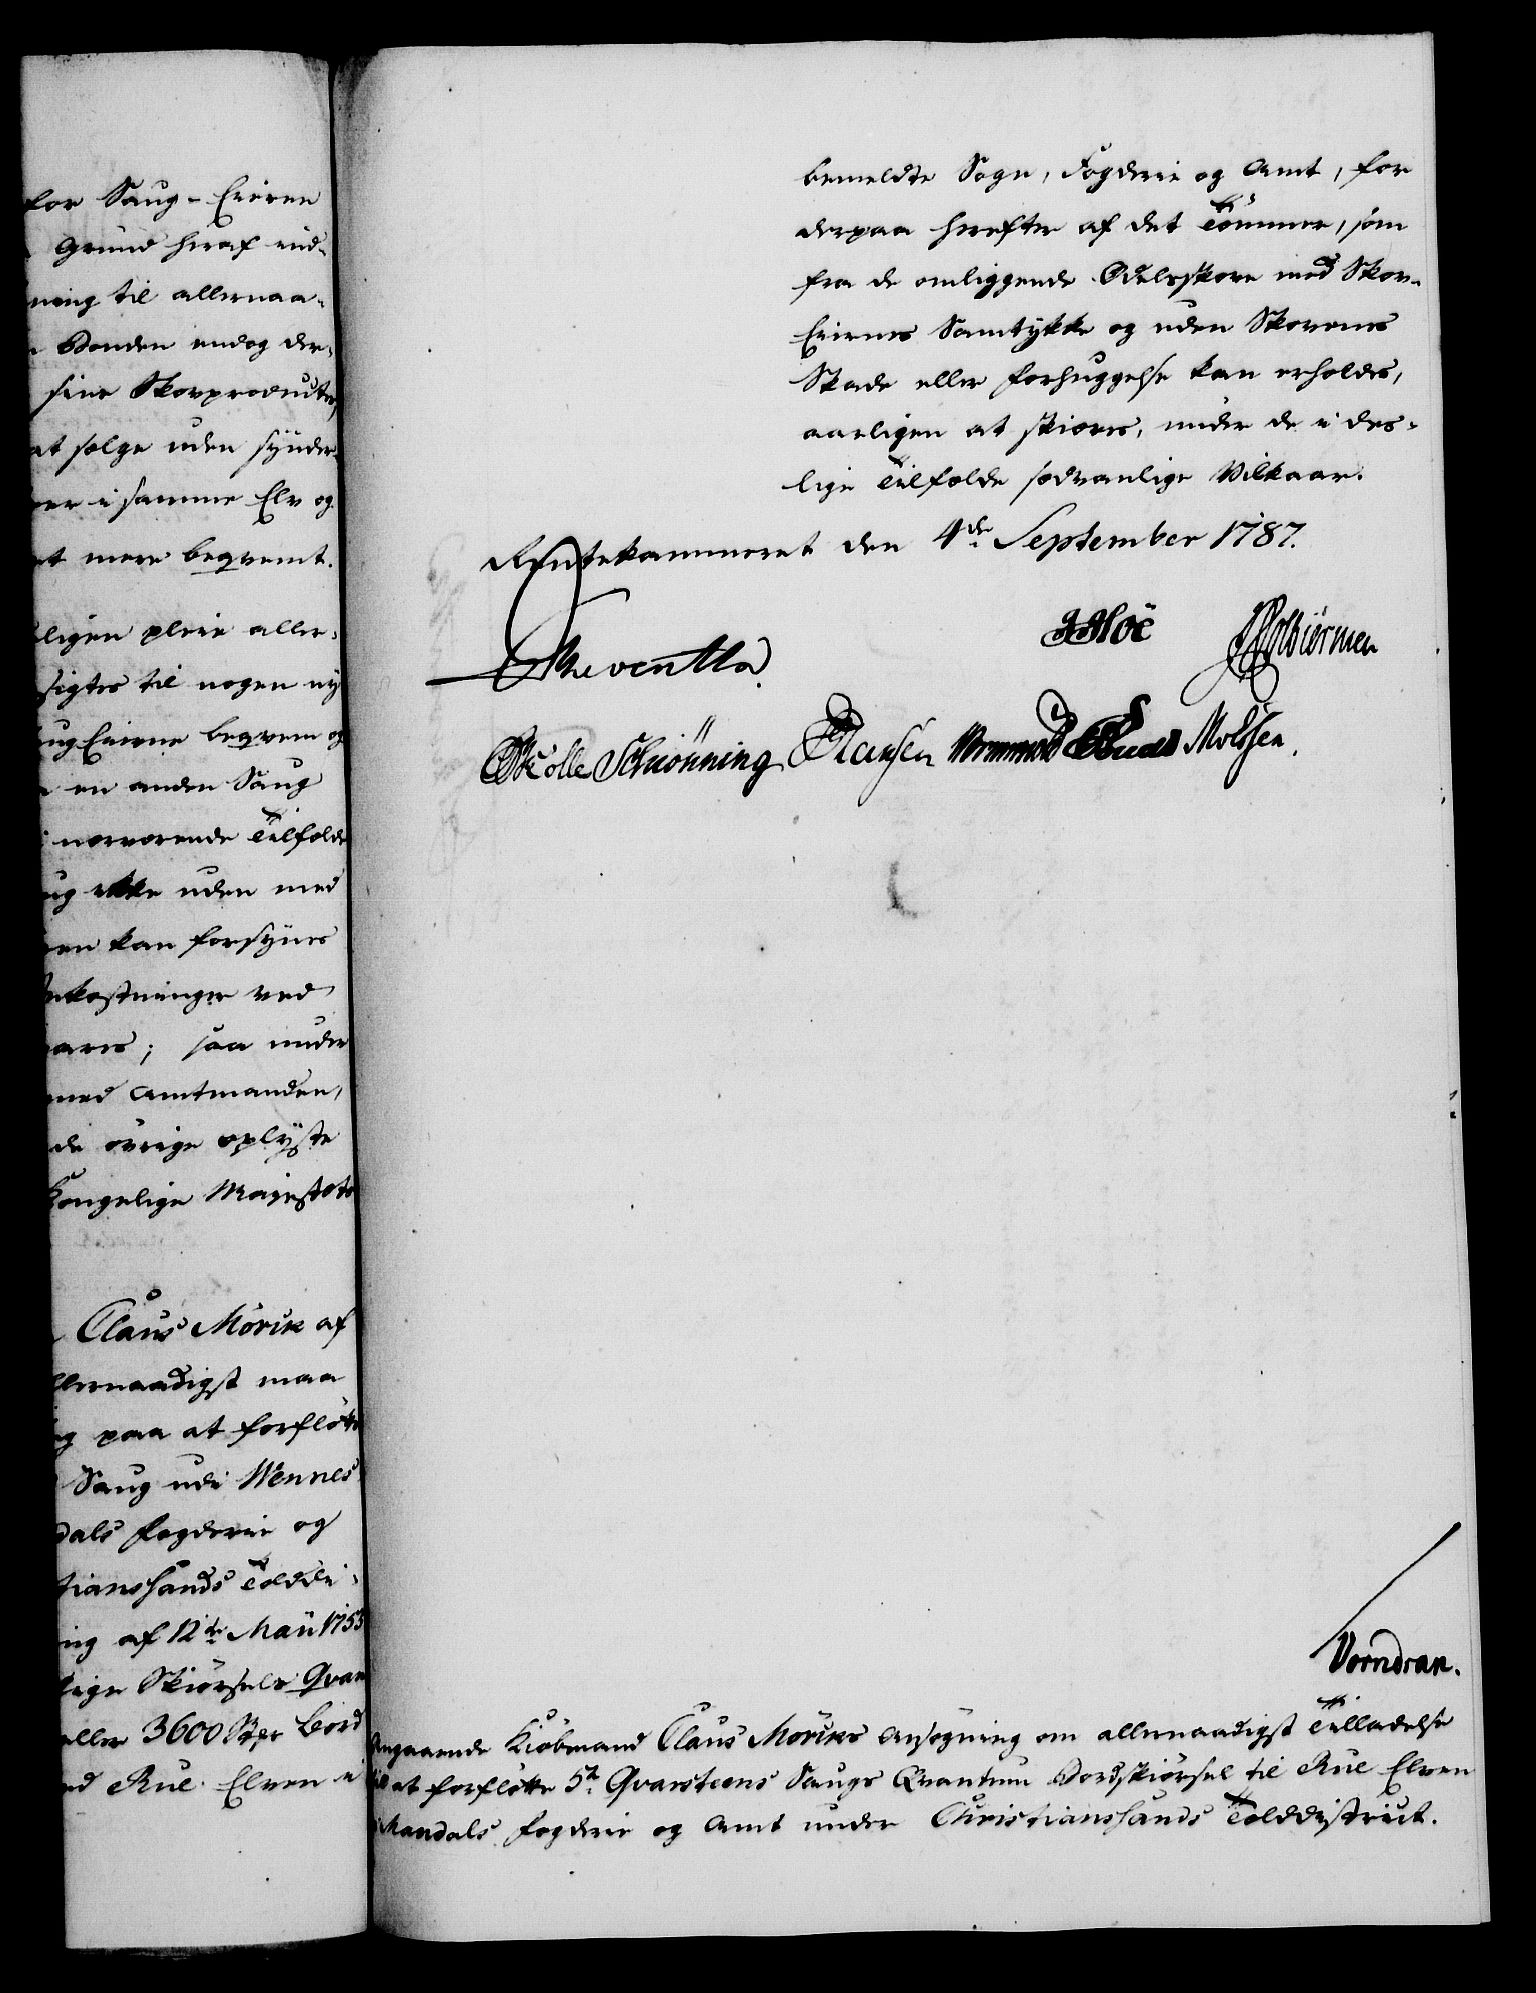 for Saug-Eieren
Grund heraf ind-
ning til allernaa-
Bonden endog der-
sine Skovproducter,
at sælge uden synder-
er i samme Elv og
et mere beqvemt.
ligen pleie aller-
sigtes til nogen ny
ug Eierne beqvem og
en anden Saug
nærværende Tilfælde
ug ikke uden med
en kan forsynes
kostninger ved
ares; saa under
med Amtmanden,
de övrige oplyste
Kongelige Majestæts
Claus Mörch af
llernaadigst maa
g paa at forflötte
Saug udi Wennes
dals Fogderie og
tiansands Tolddi-
ng af 12te Maii 1753
lige Skiörsels Qvan
eller 3600 Bord
ed Rue Elven i
bemeldte Sogn, Fogderie og Amt, for
derpaa herefter af det Tömmer, som
fra de omliggende Odelsskove med Skov-
Eiernes Samtykke og uden Skovenes
Skade eller Forhuggelse kan erholdes,
aarligen at skiæres, under de i des-
lige Tilfælde sædvanlige Vilkaar.
Rentekammeret den 4de September 1787.
Reventlow
Hoë
Wolbiörnsen
Skolle Schiönning Hansen Wormskiold Bruun Molssen.
Vorndran.
Angaaende Kiöbmand Claus Mörchs Ansögning om allernaadigst Tilladelse
til at forflötte 5te Qvarsteens Saugs Qvantum Bordskiörsel til Rue Elven
i Mandals Fogderie og Amt under Christiansands Tolddistrict.